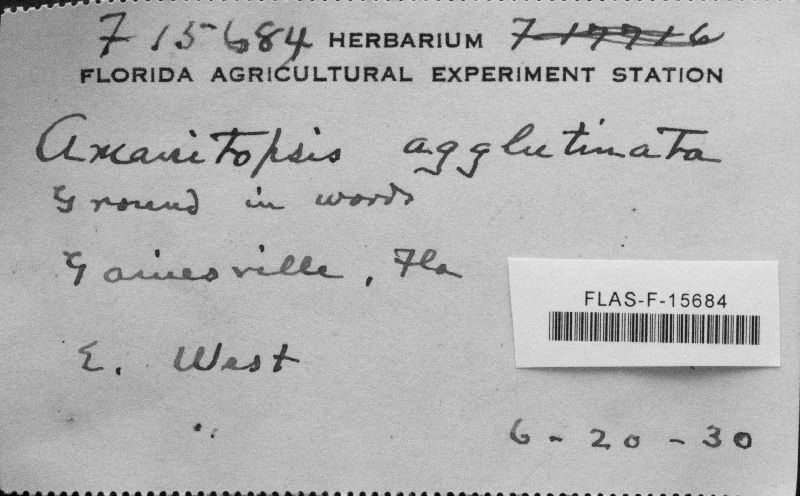 F 15684 HERBARIUM F 17716
FLORIDA AGRICULTURAL EXPERIMENT STATION
Amanitopsis agglutinata
Ground in woods
Gainesville, Fla
FLAS-F-15684
E. West
6-20-30